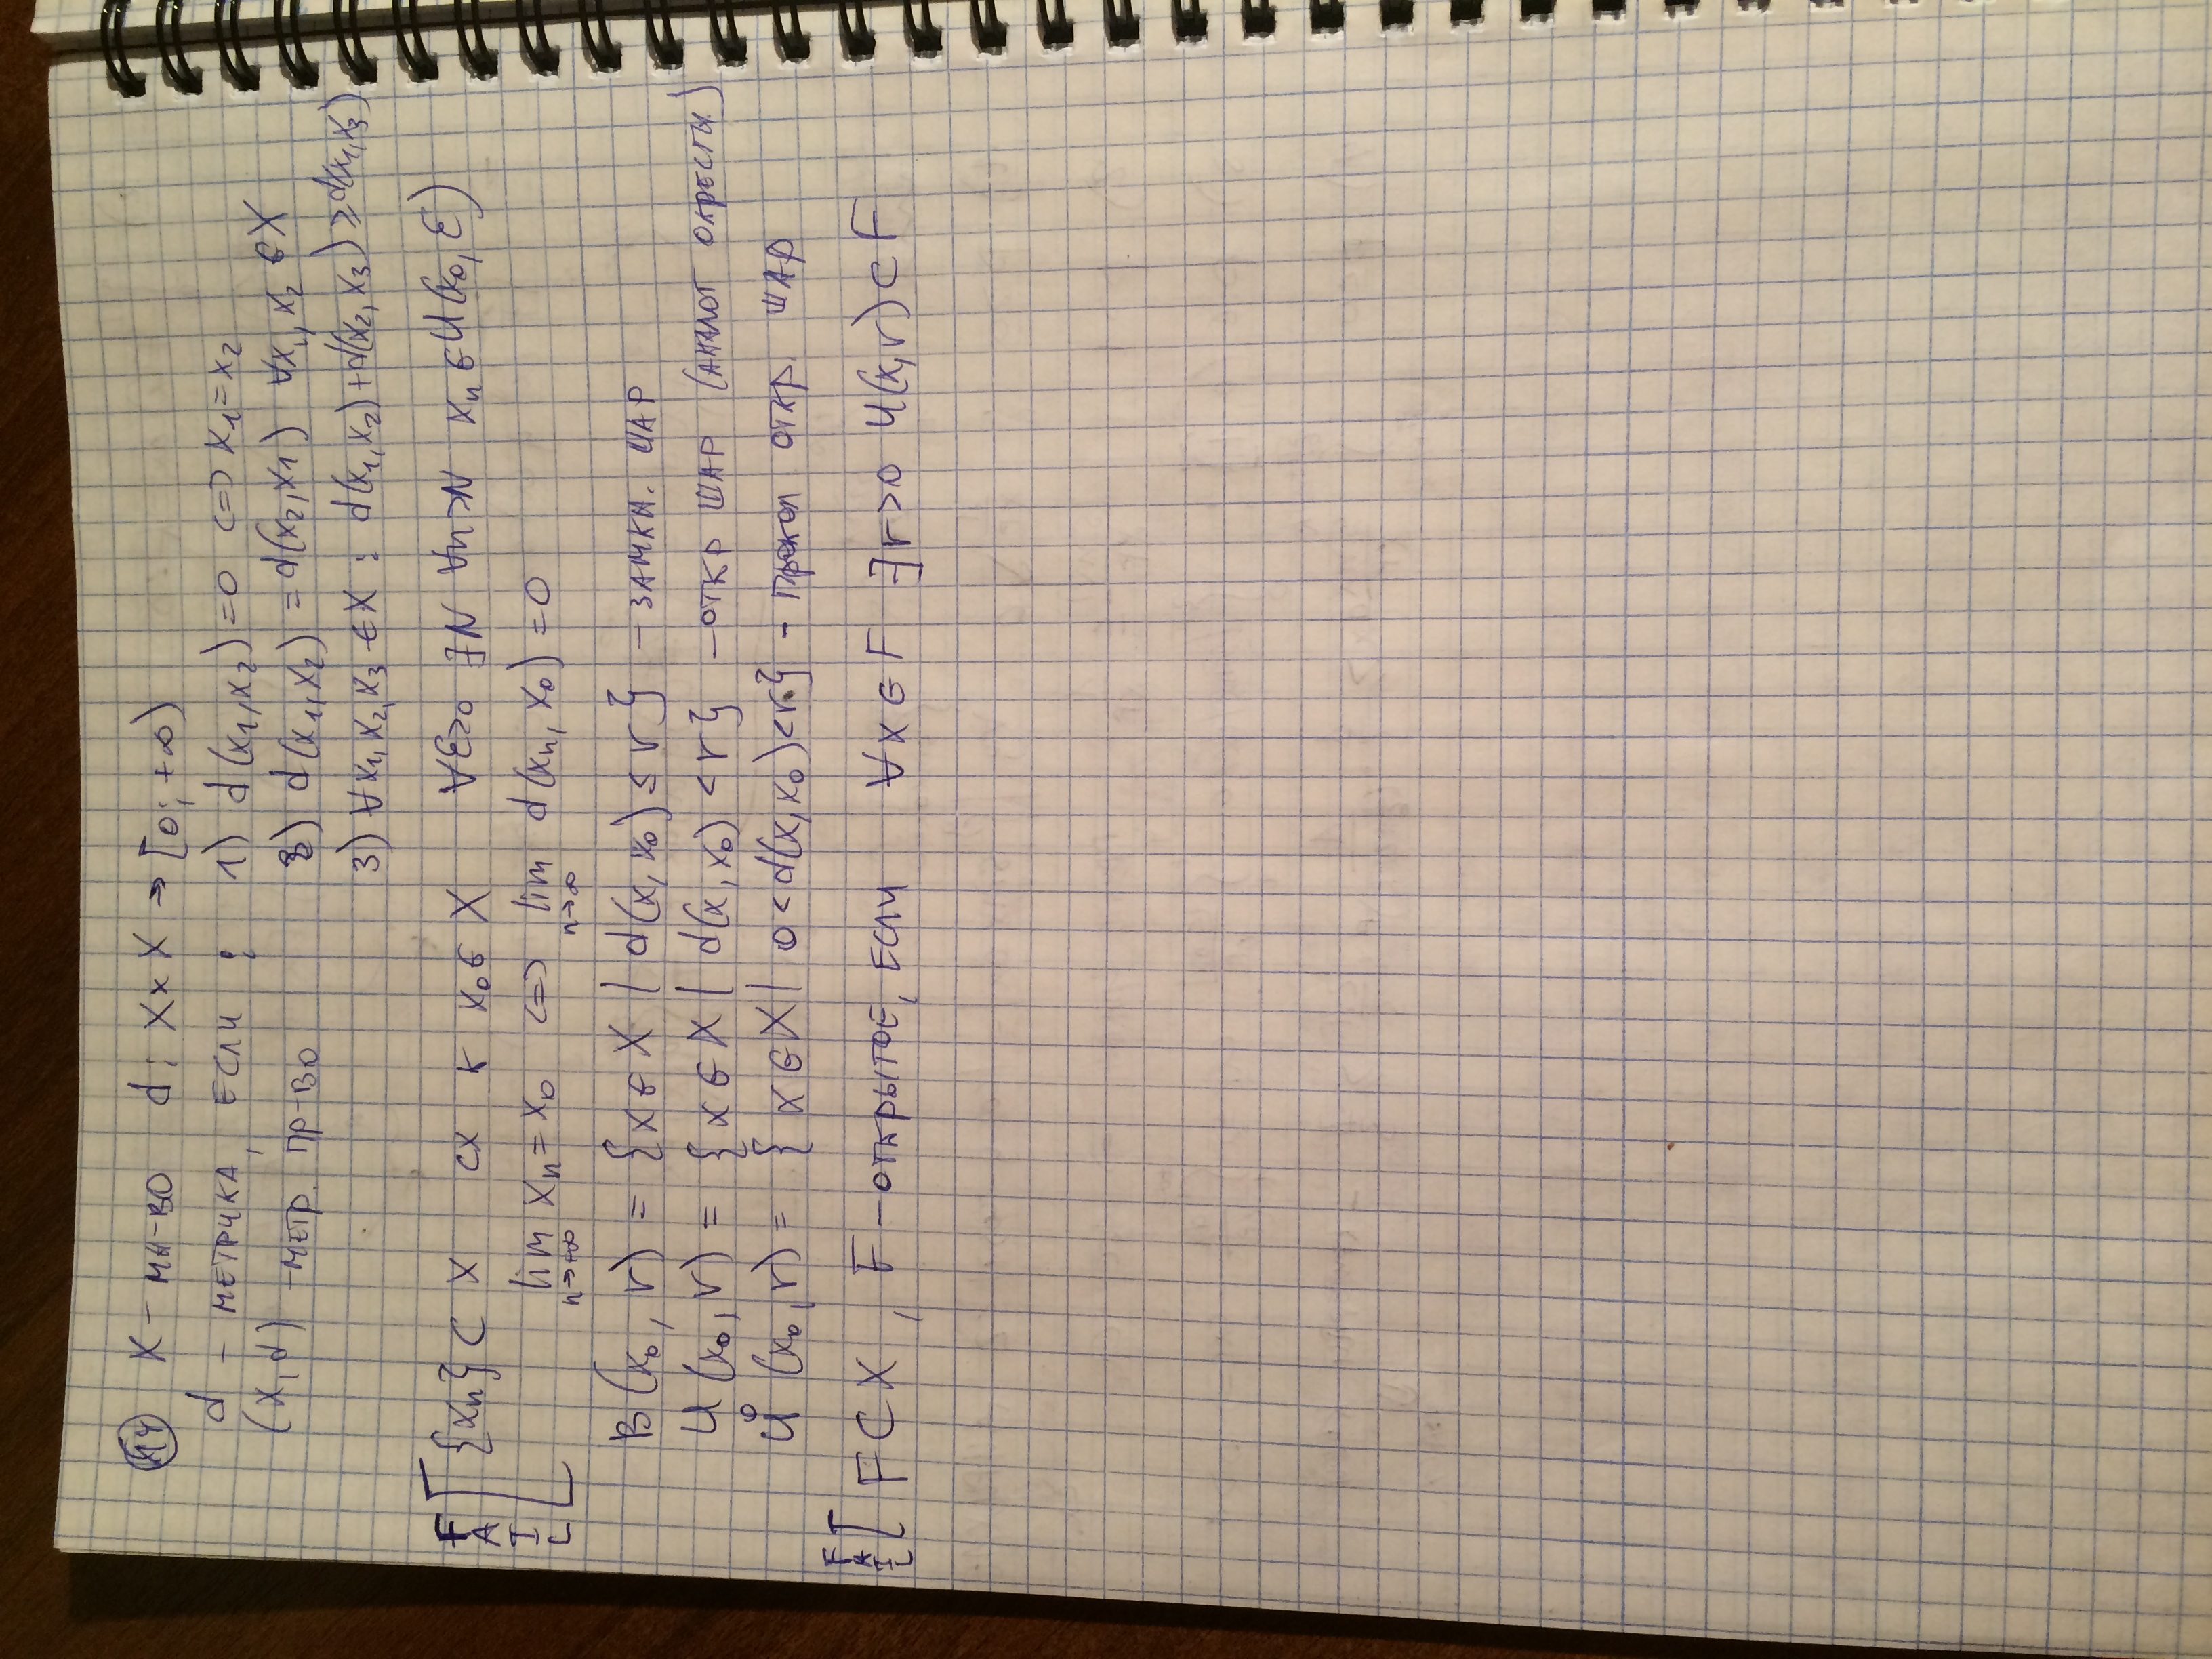 14 X – мн-во d : X × X → [0; +∞)
d – метрика, если : 1) d(x₁, x₂) = 0 <=> x₁ = x₂
(X, d) – метр. пр-во 2) d(x₁, x₂) = d(x₂, x₁) ∀x₁, x₂ ∈ X
3) ∀x₁, x₂, x₃ ∈ X : d(x₁, x₂) + d(x₂, x₃) ≥ d(x₁, x₃)
FAIL [ {xₙ} ⊂ X сх к x₀ ∈ X ∀ε>0 ∃N ∀n>N xₙ ∈ U(x₀, ε)
lim n→+∞ xₙ = x₀ <=> lim n→∞ d(xₙ, x₀) = 0
B(x₀, r) = {x ∈ X | d(x, x₀) ≤ r} – замкн. шар
U(x₀, r) = {x ∈ X | d(x, x₀) < r} – откр шар (аналог окрестн.)
Ů(x₀, r) = {x ∈ X | 0 < d(x, x₀) < r} – прокол откр. шар
FAIL [ F ⊂ X, F – открытое, если ∀x ∈ F ∃r>0 U(x, r) ⊂ F